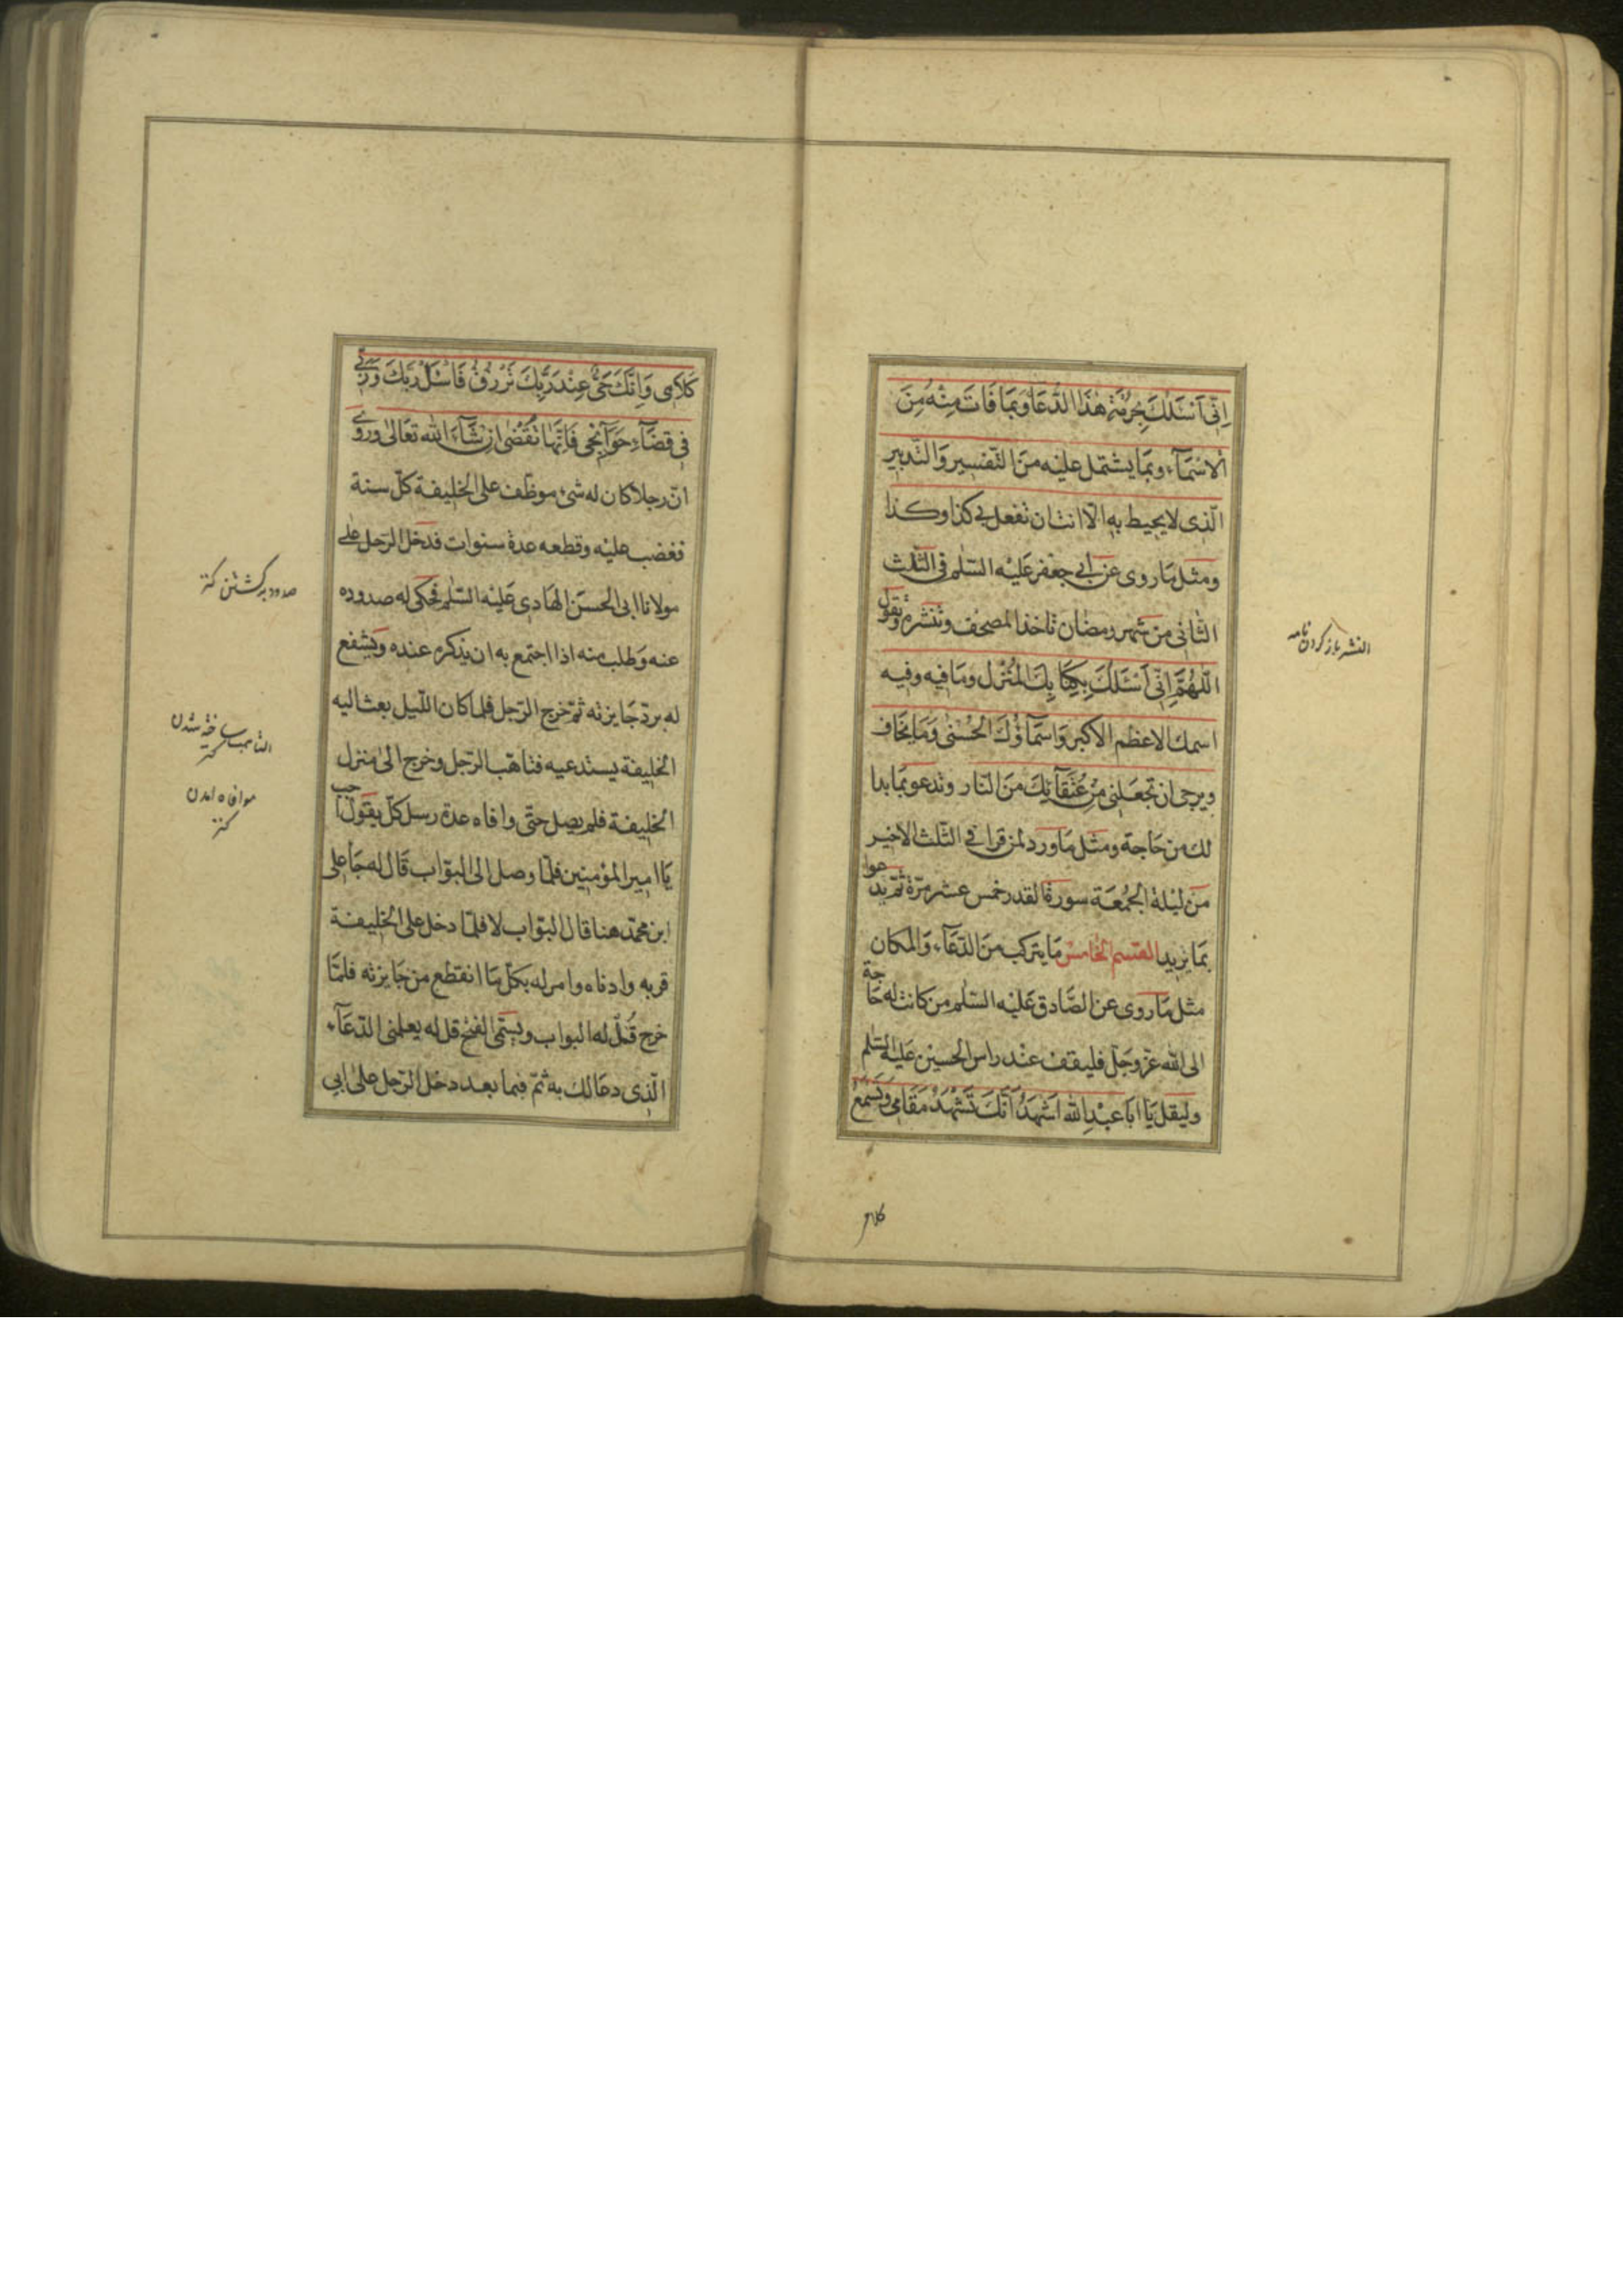 اِنّي اَسْئَلُكَ بِحُرْمَةِ هٰذَا الدُّعَآءِ وَبِمَا فَاتَ مِنْهُ مِنَ
الْاَسْمَآءِ وبِمَا يشتمل عليْه منَ التّفسير وَالتّدبير
الّذى لا يحيط به الّا انت ان تفعل بى كذا وكذا
ومثل مَا روى عن ابى جعفر عَليْه السّلم فى الثّلث
الثّانى من شهر رمضان تاخذ المصحف وتنشره وتقول
اَللّٰهُمَّ اِنّي اَسْئَلُكَ بِكِتَابِكَ الْمُنْزَل ومَا فيه وفيه
اسمك الاعظم الاكبر وَاسمَآؤُكَ الْحُسْنٰى وَمَا يخَاف
ويرجى ان تجعَلنى مِنْ عُتَقَآئِكَ منَ النّار وتدعو بمَا بدا
لك من حَاجة ومثل مَا ورد لمن قرا فى الثّلث الاخير
من ليْلة الجُمُعَة سورة القدر خمس عشر مرّة ثمّ يدعوا
بمَا يريد القسم الخامس مَا يتركب منَ الدّعَآء وَالمكان
مثل مَا روى عن الصَّادق عَليْه السّلم من كانت له حَاجة
الى الله عزّ وجَلّ فليقف عنْد راس الحسين عَليْه السّلم
وليقل يَا ابَا عَبْدِ الله اَشْهَدُ اَنَّكَ تَشْهَدُ مَقَامى وَتَسْمَعُ
كلامى
النشر باز كردن نامه
كَلَامى وَاِنَّكَ حَىٌّ عِنْدَ رَبِّكَ تُرْزَقُ فَاسْئَلْ رَبَّكَ وَرَبّى
فى قضَآءِ حَوَآئجى فَاِنَّهَا تُقْضٰى ان شَآءَ الله تعَالٰى وروى
انّ رجلا كان له شىء موظّف على الخليفة كلّ سنة
فغضب عليْه وقطعه عدة سنوات فدخل الرّجل على
مولانا ابى الحسَن الهَادى عَليْه السّلم فحكى له صدوده
عنه وَطلب منه اذا اجتمع به ان يذكره عنده ويشفع
له بردّ جَايزته ثمّ خرج الرّجل فلما كان اللّيل بعث اليه
الخليفة يستدعيه فتاهّب الرّجل وخرج الى منزل
الخليفة فلم يصل حتّى وافاه عدة رسل كلّ يقول اجب
يَا امير المؤمنين فلمّا وصل الى البوّاب قَال له جَا على
ابن محمّد هنا قال البوّاب لا فلمّا دخل على الخليفة
قربه وادناه وامر له بكلّ مَا انقطع من جَايزته فلمّا
خرج قَال له البواب ويسَمّى الفتح قل له يعلمنى الدّعَآء
الّذى دعَا لك به ثمّ فيما بعد دخل الرّجل على ابى
صدود برگشتن
التاهب ساخته شدن
موافاه امدن